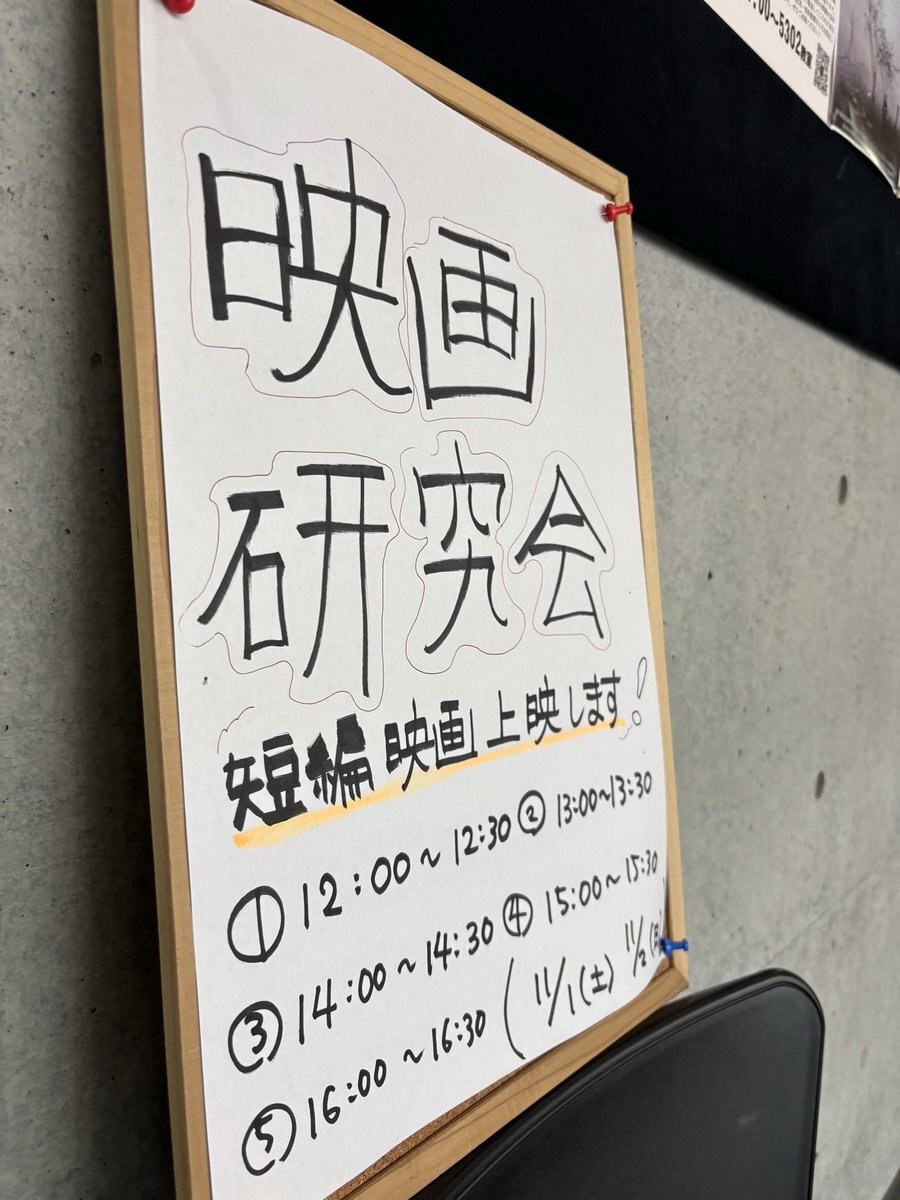 映画
研究会
短編映画上映します!
① 12:00〜12:30 ② 13:00〜13:30
③ 14:00〜14:30 ④ 15:00〜15:30
⑤ 16:00〜16:30 (11/1(土) 11/2(
:00〜5302教室